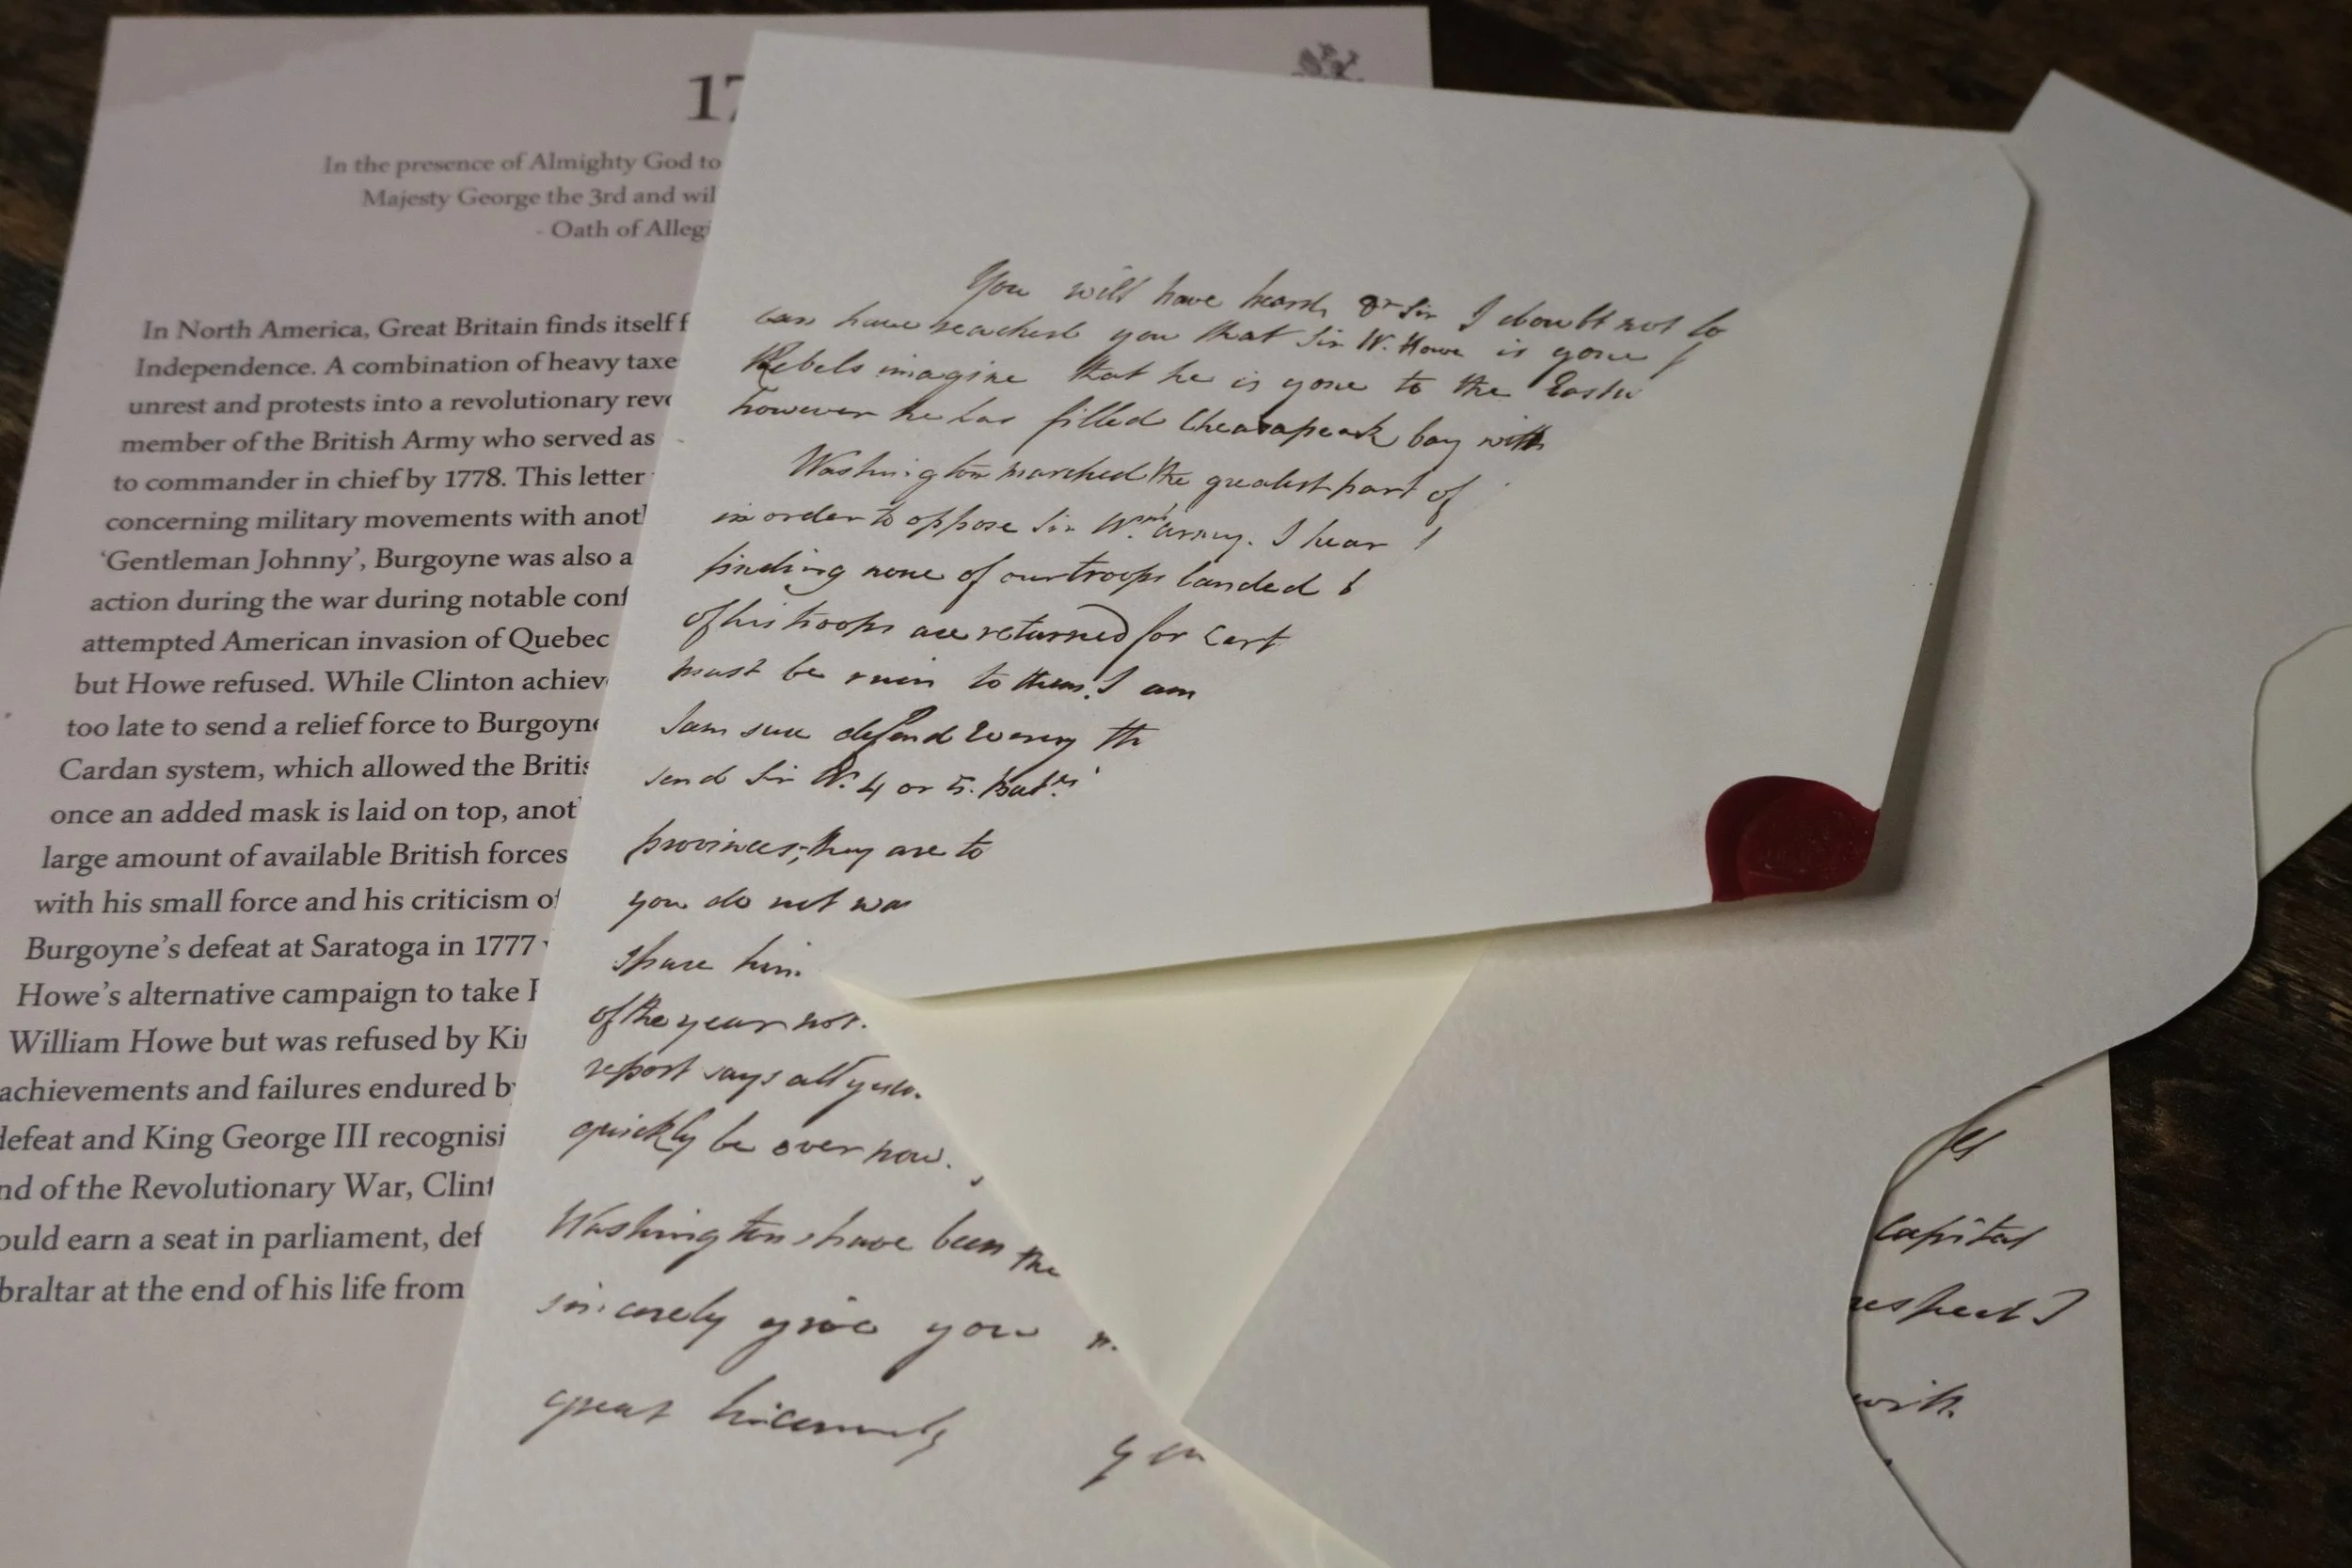 17
In the presence of Almighty God to
Majesty George the 3rd and wil
- Oath of Allegi
In North America, Great Britain finds itself f
Independence. A combination of heavy taxe
unrest and protests into a revolutionary revo
member of the British Army who served as
to commander in chief by 1778. This letter
concerning military movements with anot
‘Gentleman Johnny’, Burgoyne was also a
action during the war during notable conf
attempted American invasion of Quebec
but Howe refused. While Clinton achiev
too late to send a relief force to Burgoyne
Cardan system, which allowed the Britis
once an added mask is laid on top, anot
large amount of available British forces
with his small force and his criticism of
Burgoyne’s defeat at Saratoga in 1777
Howe’s alternative campaign to take P
William Howe but was refused by Ki
achievements and failures endured b
defeat and King George III recognisi
nd of the Revolutionary War, Clint
ould earn a seat in parliament, def
braltar at the end of his life from
You will have heard, Dr Sir I doubt not lo
can have reached you that Sir W. Howe is gone f
Rebels imagine that he is gone to the Easter
however he has filled Chesapeak bay with
Washington marched the greatest part of
in order to oppose Sir Wm's army. I hear
finding none of our troops landed
of his troops are returned for cert
must be ruin to them. I am
I am sure defend every th
send Sir W. 4 or 5. Batns
provinces; they are to
you do not wa
spare him
of the year not.
report says all
quickly be over now.
Washingtons have been the
sincerely give you
great
you
capital
respect I
with